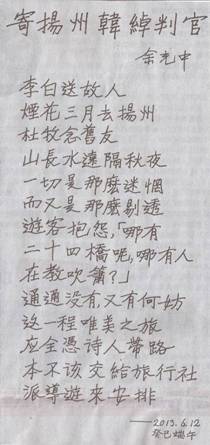 寄揚州韓綽判官
余光中
李白送故人
煙花三月去揚州
杜牧念舊友
山長水遠隔秋夜
一切是那麼迷惘
而又是那麼剔透
遊客抱怨，「哪有
二十四橋呢，哪有人
在教吹簫？」
通通没有又有何妨
这一程唯美之旅
应全憑诗人帶路
本不該交給旅行社
派導遊來安排
——2013.6.12
癸巳端午